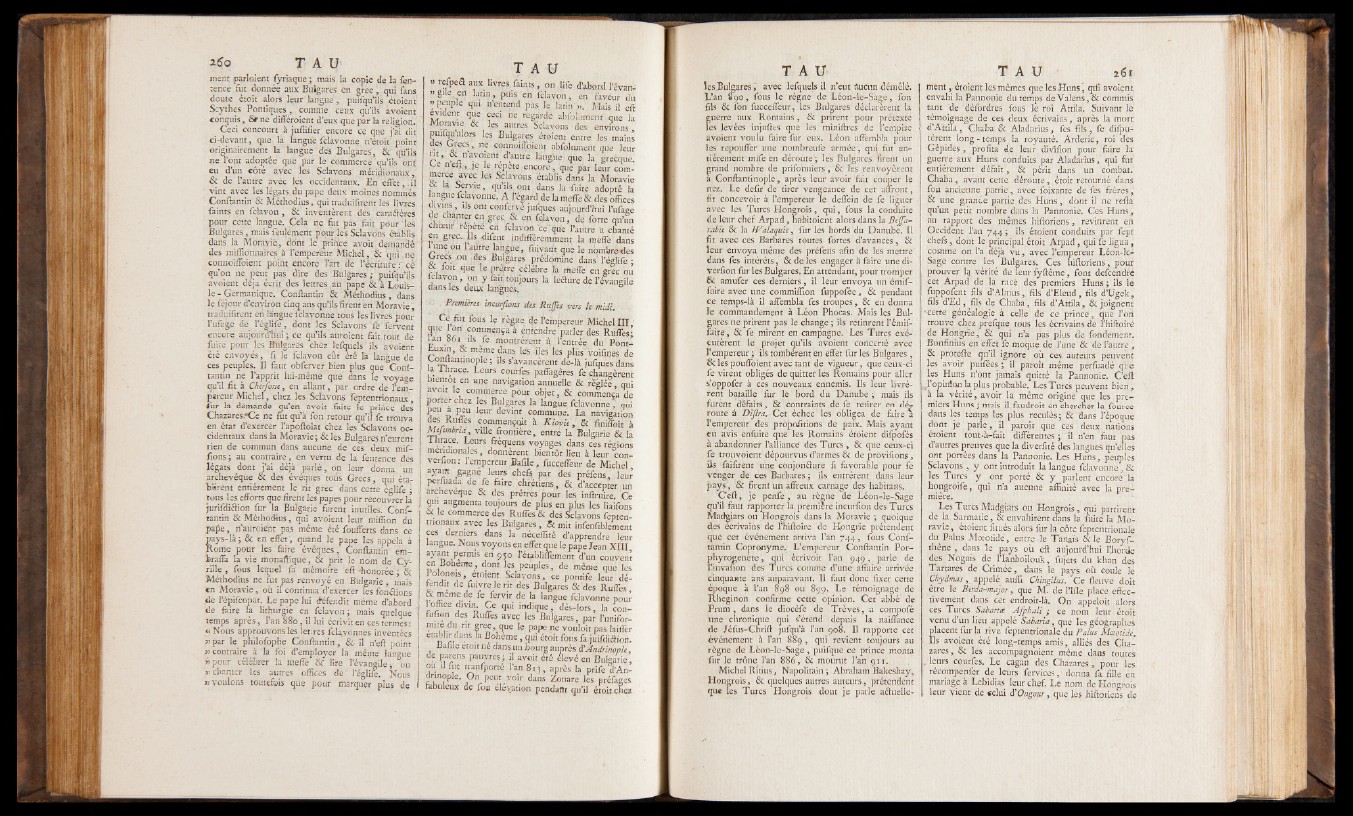 260 T A U
ment parloient syriaque ; mais la copie de la sen-
tence fut donnée aux Bulgares en grec, qui sans
doute étoit alors leur langue, puisqu'ils étoient
Scythes Pontiques, comme ceux qu'ils avoient
conquis, & ne différoient d'eux que par la religion.
Ceci concourt à justifier encore ce que j'ai dit
ci-devant, que la langue sclavonne n'étoit point
originairement la langue des Bulgares, & qu'ils
ne l'ont adoptée que par le commerce qu'ils ont
eu d'un côté avec les Sclavons méridionaux,
& de l'autre avec les occidentaux. En effet, il
vint avec les légats du pape deux moines nommés
Constantin & Méthodius, qui traduisirent les livres
saints en sclavon, & inventèrent des caractères
pour cette langue. Cela ne fut pas fait pour les
Bulgares, mais seulement pour les Sclavons établis
dans la Moravie, dont le prince avoit demandé
des missionnaires à l'empereur Michel, & qui ne
connoissoient point encore l'art de l'écriture : ce
qu'on ne peut pas dire des Bulgares ; puisqu'ils
avoient déja écrit des lettres au pape & à Louis-
le-Germanique. Constantin & Méthodius, dans
le séjour d'environ cinq ans qu'ils firent en Moravie,
traduisirent en langue sclavonne tous les livres pour
l'usage de l'église, dont les Sclavons se servent
encore aujourd'hui ; ce qu'ils auroient fait tout de
suite pour les Bulgares chez lesquels ils avoient
été envoyés, si le sclavon eût été la langue de
ces peuples. Il faut observer bien plus que Cons-
tantin ne l'apprit lui-même que dans le voyage
qu'il fit à Chersone, en allant, par ordre de l'em-
pereur Michel, chez les Sclavons septentrionaux,
sur la demande qu'en avoit faite le prince des
Chazares. Ce ne fut qu'à son retour qu'il se trouva
en état d'exercer l'apostolat chez les Sclavons oc-
cidentaux dans la Moravie ; & les Bulgares n'eurent
rien de commun dans aucune de ces deux mis-
sions ; au contraire, en vertu de la sentence des
légats dont j'ai déja parlé, on leur donna un
archevêque & des évêques tous Grecs, qui éta-
blirent entièrement le rit grec dans cette église ;
tous les efforts que firent les papes pour recouvrer la
jurisdiction sur la Bulgarie furent inutiles. Cons-
tantin & Méthodius, qui avoient leur mission du
pape, n'auroient pas même été soufferts dans ce
pays-là ; & en effet, quand le pape les appela à
Rome pour les faire évêques, Constantin em-
brassa la vie monastique, & prit le nom de Cy-
rille, sous lequel sa mémoire est honorée ; &
Méthodius ne fut pas renvoyé en Bulgarie, mais
en Moravie, où il continua d'exercer les fonctions
de l'épiscopat. Le pape lui défendit même d'abord
de faire la lithurgie en sclavon ; mais quelque
temps après, l'an 880, il lui écrivit en ces termes :
« Nous approuvons les lettres sclavonnes inventées
» par le philosophe Constantin, & il n'est point
» contraire à la foi d'employer la même langue
» pour célébrer la messe & lire l'évangile, ou
» chanter les autres offices de l'église. Nous
» voulons toutefois que pour marquer plus de
T A U
» respect aux livres saints, on lise d'abord l'évan-
» gile en latin, puis en sclavon, en faveur du
» peuple qui n'entend pas le latin ». Mais il est
évident que ceci ne regarde absolument que la
Moravie & les autres Sclavons des environs,
puisqu'alors les Bulgares étoient entre les mains
des Grecs, ne connoissoient absolument que leur
rit, & n'avoient d'autre langue que la grecque.
Ce n'est, je le répète encore, que par leur com-
merce avec les Sclavons établis dans la Moravie
& la Servie, qu'ils ont dans la suite adopté la
langue sclavonne. A l'égard de la messe & des offices
divins, ils ont conservé jusques aujourd'hui l'usage
de chanter en grec & en sclavon, de sorte qu'un
chœur répète en sclavon ce que l'autre a chanté
en grec. Ils disent indifféremment la messe dans
l'une ou l'autre langue, suivant que le nombre des
Grecs ou des Bulgares prédomine dans l'église ;
& soit que le prêtre célèbre la messe en grec ou
sclavon, on y fait toujours la lecture de l'évangile
dans les deux langues.
Premières incursions des Russes vers le midi.
Ce fut sous le règne de l'empereur Michel III,
que l'on commença à entendre parler des Russes;
l'an 861 ils se montrèrent à l'entrée du Pont-
Euxin, & même dans les îles les plus voisines de
Constantinople ; ils s'avancèrent de-là jusques dans
la Thrace. Leurs courses passagères se changèrent
bientôt en une navigation annuelle & réglée, qui
avoit le commerce pour objet, & commença de
porter chez les Bulgares la langue sclavonne, qui
peu à peu leur devint commune. La navigation
des Russes commençoit à Kiovie, & finissoit à
Mesembria, ville frontière, entre la Bulgarie & la
Thrace. Leurs fréquens voyages dans ces régions
méridionales, donnèrent bientôt lieu à leur con-
version : l'empereur Basile, successeur de Michel,
ayant gagné leurs chefs par des présens, leur
persuada de se faire chrétiens, & d'accepter un
archevêque & des prêtres pour les instruire. Ce
qui augmenta toujours de plus en plus les liaisons
& le commerce des Russes & des Sclavons septen-
trionaux avec les Bulgares, & mit insensiblement
ces derniers dans la nécessité d'apprendre leur
langue. Nous voyons en effet que le pape Jean XIII,
ayant permis en 950 l'établissement d'un couvent
en Bohême, dont les peuples, de même que les
Polonois, étoient Sclavons, ce pontife leur dé-
fendit de suivre le rit des Bulgares & des Russes,
& même de se servir de la langue sclavonne pour
l'office divin. Ce qui indique, dès-lors, la con-
fusion des Russes avec les Bulgares, par l'unifor-
mité du rit grec, que le pape ne vouloit pas laisser
établir dans la Bohême, qui étoit sous sa jurisdiction.
Basile étoit né dans un bourg auprès d'Andrinople,
de parens pauvres ; il avoit été élevé en Bulgarie,
où il fut transporté l'an 813, après la prise d'An-
drinople. On peut voir dans Zonare les présages
fabuleux de son élévation pendant qu'il étoit chez
T A U
les Bulgares, avec lesquels il n'eut aucun démêlé.
L'an 890, sous le règne de Léon-le-Sage, son
fils & son successeur, les Bulgares déclarèrent la
guerre aux Romains, & prirent pour prétexte
les levées injustes que les ministres de l'empire
avoient voulu faire sur eux. Léon assembla pour
les repousser une nombreuse armée, qui fut en-
tièrement mise en déroute ; les Bulgares firent un
grand nombre de prisonniers, & les renvoyèrent
à Constantinople, après leur avoir fait couper le
nez. Le desir de tirer vengeance de cet affront,
fit concevoir à l'empereur le dessein de se liguer
avec les Turcs Hongrois, qui, sous la conduite
de leur chef Arpad, habitoient alors dans la Bessa-
rabie & la Walaquie, sur les bords du Danube. Il
fit avec ces Barbares toutes sortes d'avances, &
leur envoya même des présens afin de les mettre
dans ses intérêts, & de les engager à faire une di-
version sur les Bulgares. En attendant, pour tromper
& amuser ces derniers, il leur envoya un émis-
saire avec une commission supposée, & pendant
ce temps-là il assembla ses troupes, & en donna
le commandement à Léon Phocas. Mais les Bul-
gares ne prirent pas le change ; ils retinrent l'émis-
saire, & se mirent en campagne. Les Turcs exé-
cutèrent le projet qu'ils avoient concerté avec
l'empereur ; ils tombèrent en effet sur les Bulgares,
& les poussoient avec tant de vigueur, que ceux-ci
se virent obligés de quitter les Romains pour aller
s'opposer à ces nouveaux ennemis. Ils leur livrè-
rent bataille sur le bord du Danube, mais ils
furent défaits, & contraints de se retirer en dé-
route à Distra. Cet échec les obligea de faire à
l'empereur des propositions de paix. Mais ayant
eu avis ensuite que les Romains étoient disposés
à abandonner l'alliance des Turcs, & que ceux-ci
se trouvoient dépourvus d'armes & de provisions,
ils saisirent une conjoncture si favorable pour se
venger de ces Barbares ; ils entrèrent dans leur
pays, & firent un affreux carnage des habitans.
C'est, je pense, au règne de Léon-le-Sage
qu'il faut rapporter la première incursion des Turcs
Madgiars ou Hongrois dans la Moravie ; quoique
des écrivains de l'histoire de Hongrie prétendent
que cet événement arriva l'an 744, sous Cons-
tantin Copronyme. L'empereur Constantin Por-
phyrogenète, qui écrivoit l'an 949, parle de
l'invasion des Turcs comme d'une affaire arrivée
cinquante ans auparavant. Il faut donc fixer cette
époque à l'an 898 ou 899. Le témoignage de
Rheginon confirme cette opinion. Cet abbé de
Prum, dans le diocèse de Trèves, a composé
une chronique qui s'étend depuis la naissance
de Jésus-Christ jusqu'à l'an 908. Il rapporte cet
événement à l'an 889, qui revient toujours au
règne de Léon-le-Sage, puisque ce prince monta
sur le trône l'an 886, & mourut l'an 911.
Michel Ritius, Napolitain ; Abraham Bakeskay,
Hongrois, & quelques autres auteurs, prétendent
que les Turcs Hongrois dont je parle actuelle-
T A U 261
ment, étoient les mêmes que les Huns, qui avoient
envahi la Pannonie du temps de Valens, & commis
tant de désordres sous le roi Attila. Suivant le
témoignage de ces deux écrivains, après la mort
d'Attila, Chaba & Aladarius, ses fils, se dispu-
tèrent long-temps la royauté. Arderic, roi des
Gépides, profita de leur division pour faire la
guerre aux Huns conduits par Aladarius, qui fut
entièrement défait, & périt dans un combat.
Chaba, avant cette déroute, étoit retourné dans
son ancienne patrie, avec soixante de ses frères,
& une grande partie des Huns, dont il ne resta
qu'un petit nombre dans la Pannonie. Ces Huns,
au rapport des mêmes historiens, revinrent en
Occident l'an 744 ; ils étoient conduits par sept
chefs, dont le principal étoit Arpad, qui se ligua,
comme on l'a déja vu, avec l'empereur Léon-le-
Sage contre les Bulgares. Ces historiens, pour
prouver la vérité de leur systême, font descendre
cet Arpad de la race des premiers Huns ; ils le
supposent fils d'Almus, fils d'Eleud, fils d'Ugek,
fils d'Ed, fils de Chaba, fils d'Attila, & joignent
cette généalogie à celle de ce prince, que l'on
trouve chez presque tous les écrivains de l'histoire
de Hongrie, & qui n'a pas plus de fondement.
Bonfinius en effet se moque de l'une & de l'autre,
& proteste qu'il ignore où ces auteurs peuvent
les avoir puisées ; il paroît même persuadé que
les Huns n'ont jamais quitté la Pannonie. C'est
l'opinion la plus probable. Les Turcs peuvent bien,
à la vérité, avoir la même origine que les pre-
miers Huns ; mais il faudroit en chercher la source
dans les temps les plus reculés ; & dans l'époque
dont je parle, il paroît que ces deux nations
étoient tout-à-fait différentes ; il n'en faut pas
d'autres preuves que la diversité des langues qu'elles
ont portées dans la Pannonie. Les Huns, peuples
Sclavons, y ont introduit la langue sclavonne, &
les Turcs y ont porté & y parlent encore la
hongroise, qui n'a aucune affinité avec la pre-
mière.
Les Turcs Madgiars ou Hongrois, qui partirent
de la Sarmatie, & envahirent dans la suite la Mo-
ravie, étoient situés alors sur la côte septentrionale
du Palus Mœotide, entre le Tanaïs & le Borys-
thène, dans le pays où est aujourd'hui l'horde
des Nogais de l'Ianboïlouk, sujets du khan des
Tartares de Crimée, dans le pays où coule le
Chydmas, appelé aussi Chingilus. Ce fleuve doit
être le Berda-major, que M. de l'Isle place effec-
tivement dans cet endroit-là. On appeloit alors
ces Turcs Sabartæ Asphali ; ce nom leur étoit
venu d'un lieu appelé Sabaria, que les géographes
placent sur la rive septentrionale du Palus Mæotide.
Ils avoient été long-temps amis, alliés des Cha-
zares, & les accompagnoient même dans toutes
leurs courses. Le cagan des Chazares, pour les
récompenser de leurs services, donna sa fille en
mariage à Lebidias leur chef. Le nom de Hongrois
leur vient de celui d'Ongour, que les historiens de